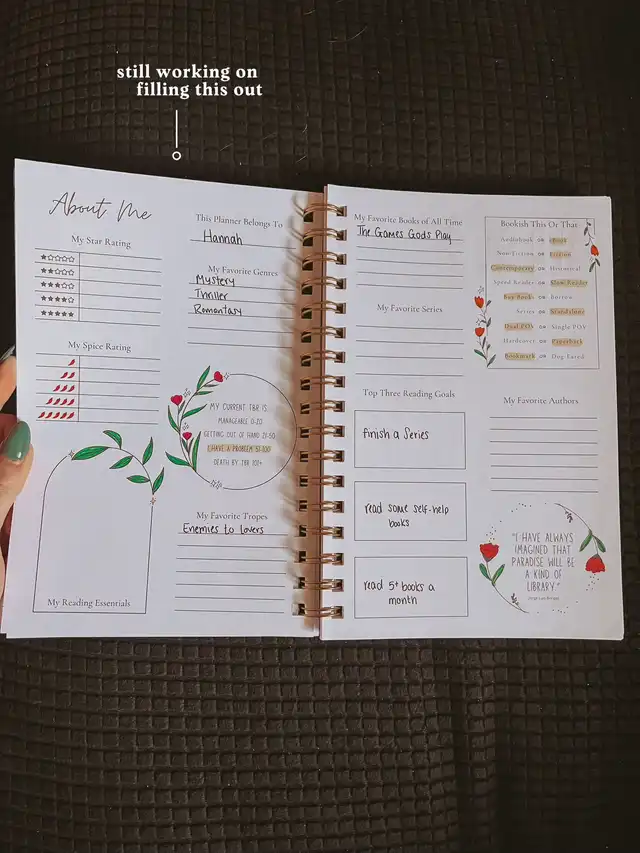 still working on
filling this out
About Me
My Star Rating
My Spice Rating
My Reading Essentials
This Planner Belongs To
Hannah
My Favorite Genres
Mystery
Thriller
Romantasy
MY CURRENT TBR IS
MANAGEABLE 0-20
GETTING OUT OF HAND 21-50
I HAVE A PROBLEM 51-100
DEATH BY TBR 101+
My Favorite Tropes
Enemies to lovers
My Favorite Books of All Time
The Games Gods Play
My Favorite Series
Top Three Reading Goals
finish a series
read some self-help
books
read 5+ books a
month
Bookish This Or That
Audiobook OR eBook
Non-Fiction OR Fiction
Contemporary OR Historical
Speed Reader OR Slow Reader
Buy Book OR Borrow
Series OR Standalone
Dual POV OR Single POV
Hardcover OR Paperback
Bookmark OR Dog-Eared
My Favorite Authors
"I HAVE ALWAYS
IMAGINED THAT
PARADISE WILL BE
A KIND OF
LIBRARY."